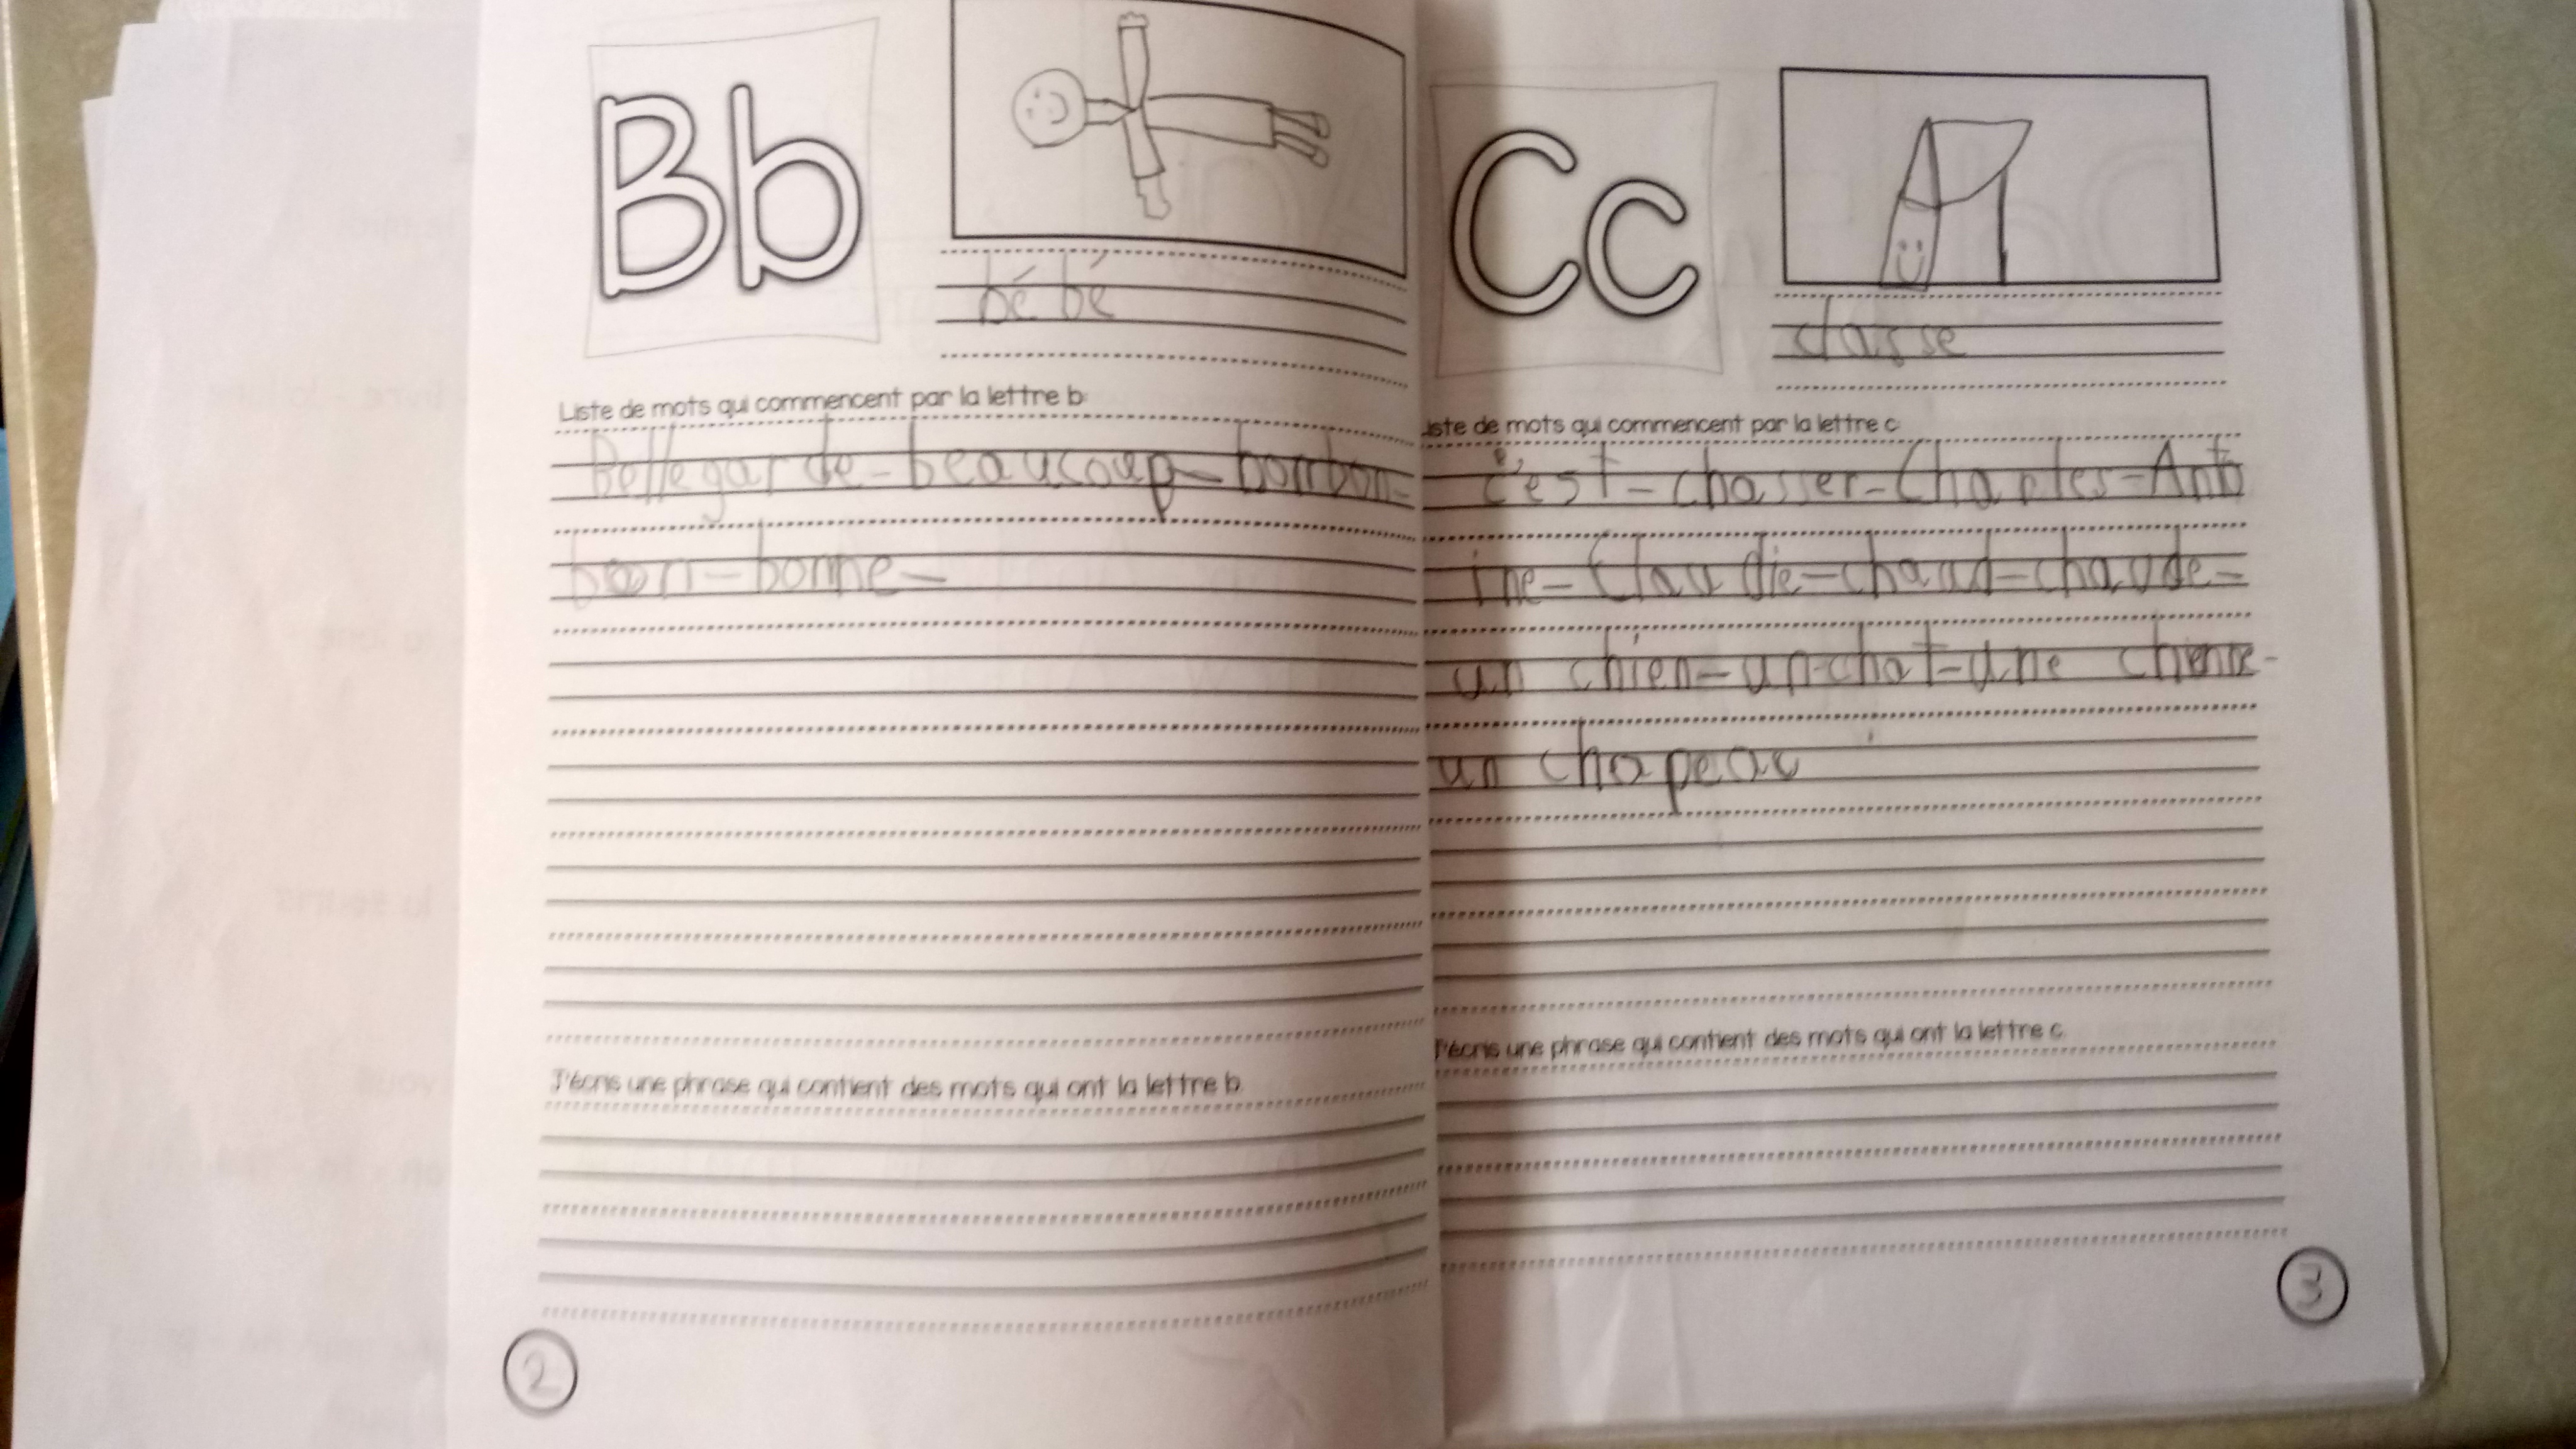 Bb
bébé
Liste de mots qui commencent par la lettre b:
Bellegarde-beaucoup-bonbon-
bon-bonne-
J'écris une phrase qui contient des mots qui ont la lettre b.
2
Cc
classe
iste de mots qui commencent par la lettre c:
c'est-chasser-Charles-Anto
ine-Claudie-chaud-chaude-
un chien-un chat-une chienne-
un chapeau
J'écris une phrase qui contient des mots qui ont la lettre c.
3